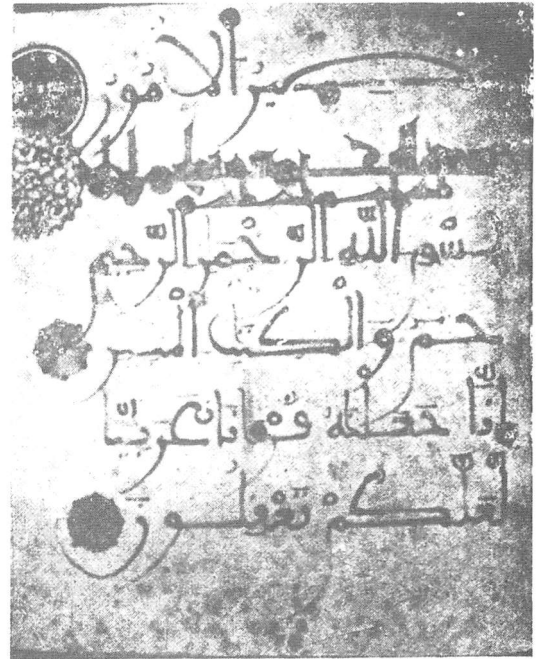 تَصِيرُ الْأُمُورُ
بِسْمِ اللَّهِ الرَّحْمَنِ الرَّحِيمِ
حم وَالْكِتَبِ الْمُبِينِ
إِنَّا جَعَلْنَهُ قُرْءَانًا عَرَبِيًّا
لَّعَلَّكُمْ تَعْقِلُونَ